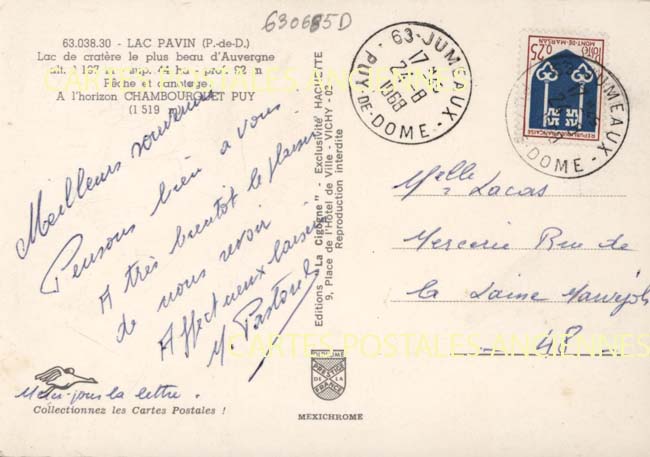 630685D
63.038.30 - LAC PAVIN (P.-de-D.)
Lac de cratère le plus beau d'Auvergne
alt. à 1197 m - sup. 44 ha - prof. 92 m
Pêche et canotage.
A l'horizon CHAMBOURGUET PUY
(1 519
Meilleurs souvenirs
Pensons bien à vous
A très bientôt le plaisir
de nous revoir
Affectueux baisers
M Pastorel
Collectionnez les Cartes Postales !
Editions "La Cigogne" - Exclusivité HACHETTE
9, Place de l'Hôtel de Ville - VICHY - 03
Reproduction interdite
PRESTIGE
DE LA
FRANCE
MEXICHROME
63-JUMEAUX
17
1968
PUY-DE-DOME
0,25
MONT-DE-MARSAN
REPUBLIQUE FRANCAISE
JUMEAUX
DOME
Melle Lacas
Mercerie Rue de
la Laine Marvejols
48
CARTES POSTALES ANCIENNES
CARTES POSTALES ANCIENNES